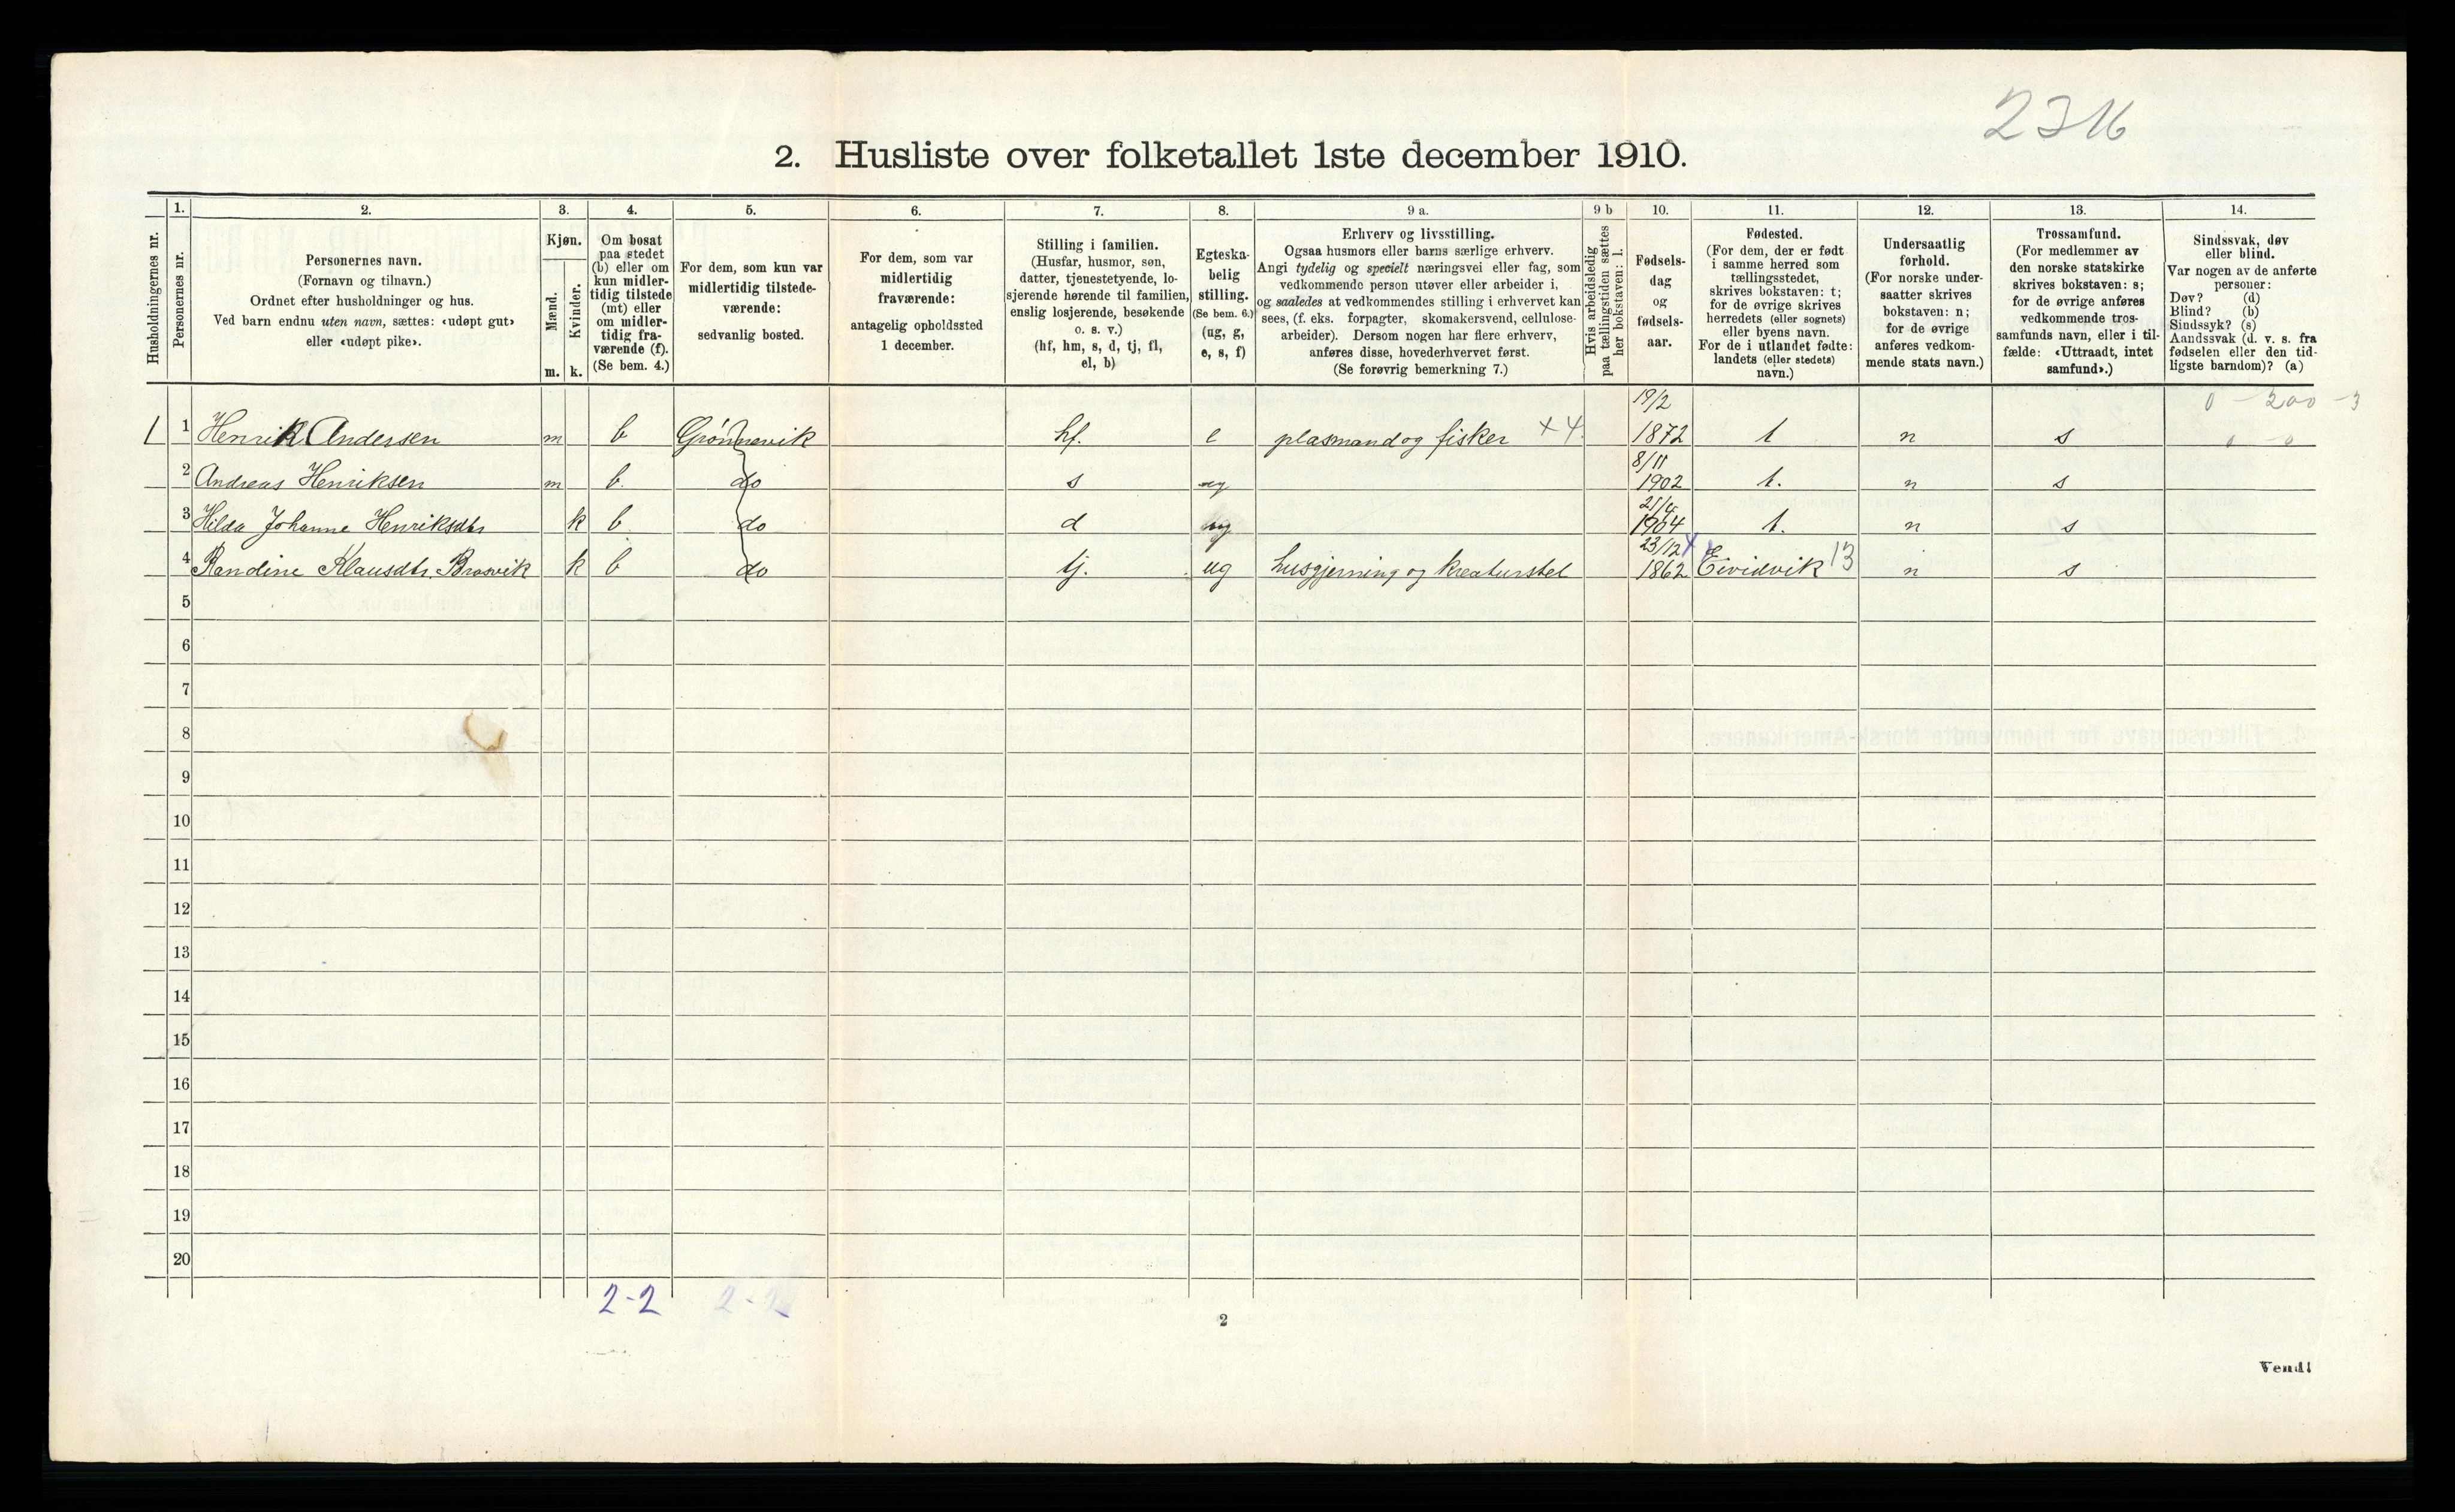 2316
2. Husliste over folketallet 1ste december 1910.
1. 2. 3. 4. 5. 6. 7. 8. 9 a. 9 b 10. 11. 12. 13. 14.
Husholdningernes nr.
Personernes nr.
Personernes navn.
(Fornavn og tilnavn.)
Ordnet efter husholdninger og hus.
Ved barn endnu uten navn, sættes: «udøpt gut»
eller «udøpt pike».
Kjøn.
Mænd.
Kvinder.
m. k.
Om bosat
paa stedet
(b) eller om
kun midler-
tidig tilstede
(mt) eller
om midler-
tidig fra-
værende (f).
(Se bem. 4.)
For dem, som kun var
midlertidig tilstede-
værende:
sedvanlig bosted.
For dem, som var
midlertidig
fraværende:
antagelig opholdssted
1 december.
Stilling i familien.
(Husfar, husmor, søn,
datter, tjenestetyende, lo-
sjerende hørende til familien,
enslig losjerende, besøkende
o. s. v.)
(hf, hm, s, d, tj, fl,
el, b)
Egteska-
belig
stilling.
(Se bem. 6.)
(ug, g,
e, s, f)
Erhverv og livsstilling.
Ogsaa husmors eller barns særlige erhverv.
Angi tydelig og specielt næringsvei eller fag, som
vedkommende person utøver eller arbeider i,
og saaledes at vedkommendes stilling i erhvervet kan
sees, (f. eks. forpagter, skomakersvend, cellulose-
arbeider). Dersom nogen har flere erhverv,
anføres disse, hovederhvervet først.
(Se forøvrig bemerkning 7.)
Hvis arbeidsledig
paa tællingstiden sættes
her bokstaven: l.
Fødsels-
dag
og
fødsels-
aar.
Fødested.
(For dem, der er født
i samme herred som
tællingsstedet,
skrives bokstaven: t;
for de øvrige skrives
herredets (eller sognets)
eller byens navn.
For de i utlandet fødte:
landets (eller stedets)
navn.)
Undersaatlig
forhold.
(For norske under-
saatter skrives
bokstaven: n;
for de øvrige
anføres vedkom-
mende stats navn.)
Trossamfund.
(For medlemmer av
den norske statskirke
skrives bokstaven: s;
for de øvrige anføres
vedkommende tros-
samfunds navn, eller i til-
fælde: «Uttraadt, intet
samfund».)
Sindssvak, døv
eller blind.
Var nogen av de anførte
personer:
Døv? (d)
Blind? (b)
Sindssyk? (s)
Aandssvak (d. v. s. fra
fødselen eller den tid-
ligste barndom)? (a)
0 - 200 - 3
1 1 Henrik Andersen m b Grønnevik hf. e plasmand og fisker ×4 19/2 1872 t n s 0 - 0
2 Andreas Henriksen m b. do s ug 8/11 1902 t. n s
3 Hilda Johanne Henriksdtr k b do d ug 21/4 1904 t. n s
4 Randine Klausdtr. Brosvik k b do tj. ug husgjerning og kreaturstel 23/12 1862 Eividvik 13 n s
5
6
7
8
9
10
11
12
13
14
15
16
17
18
19
20
2-2 2-2
2
Vend!